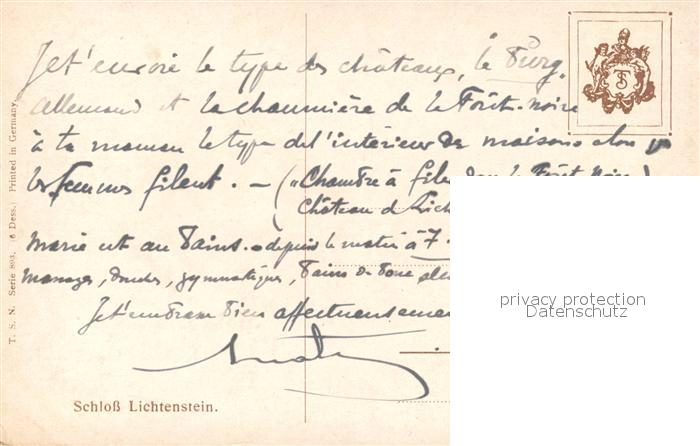 Je t'envoie le type des châteaux, le Burg
allemand et la chaumière de la Forêt-noire
à ta maman le type de l'intérieur de maison où
les femmes filent. — ("Chambre à filer dans la Forêt Noire)
Château d Lich
Marie est au Bains. depuis le matin à 7.
massages, douches, gymnastiques, Bains de boue
Je t'embrasse bien affectueusement
Schloß Lichtenstein.
T. S. N. Serie 893. (6 Dess.) Printed in Germany
TS
privacy protection
Datenschutz